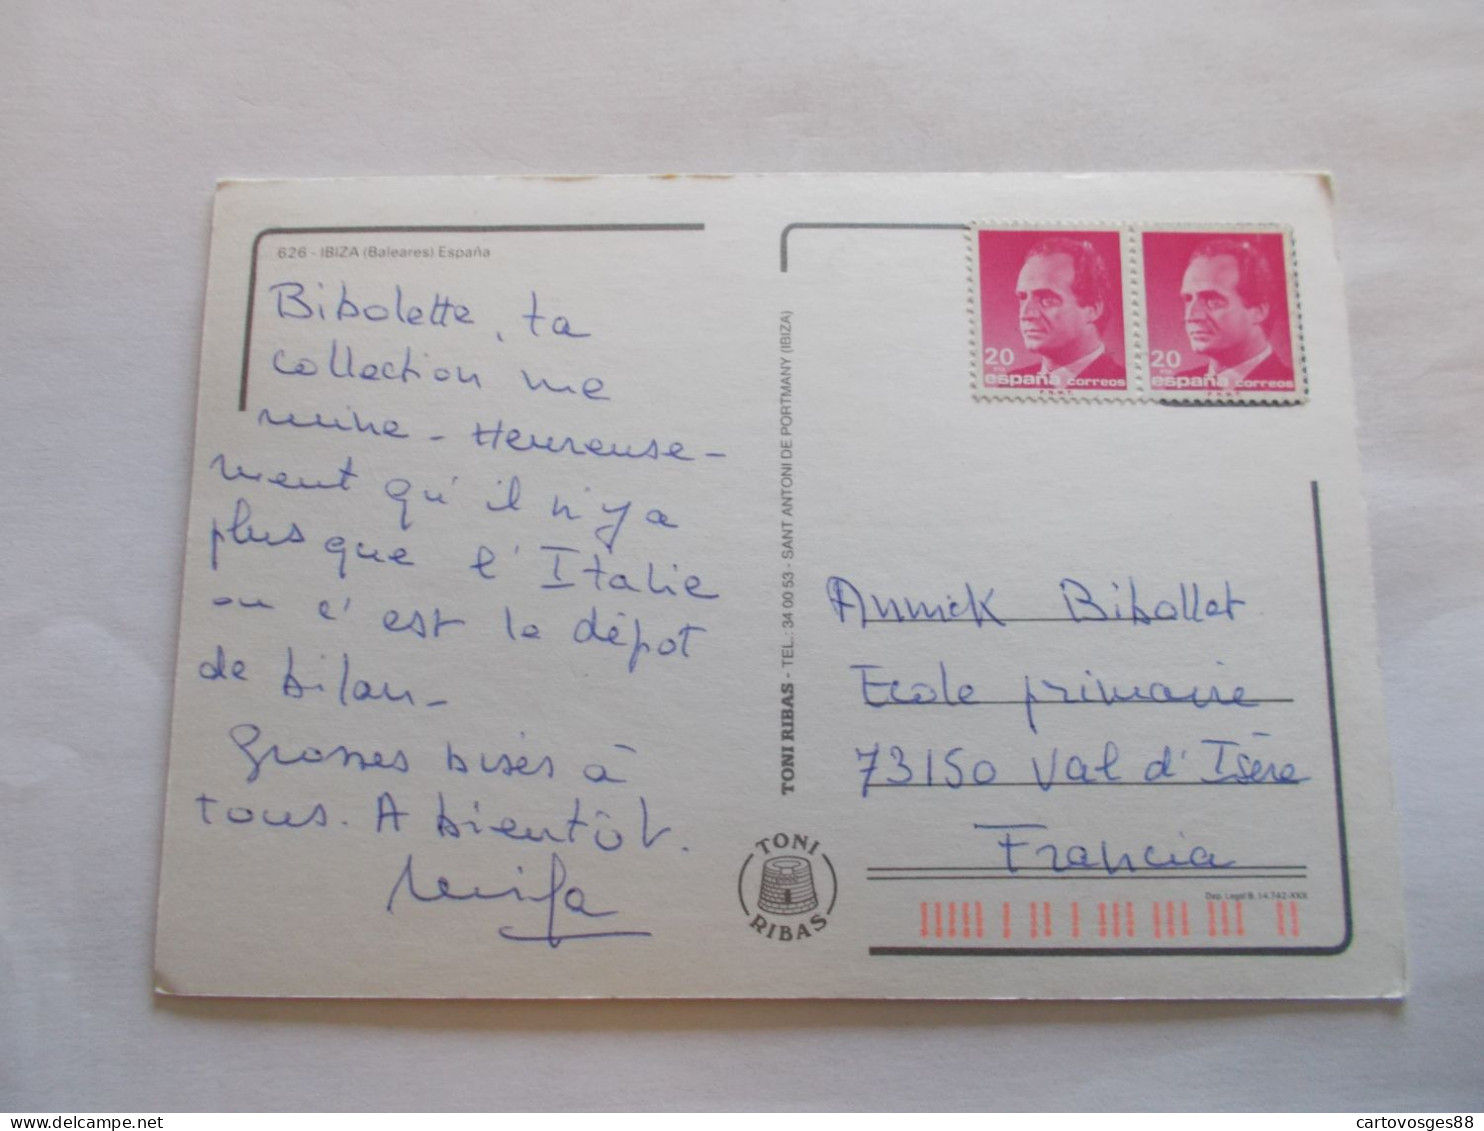 626 - IBIZA (Baleares) España
Bibolette, ta
collection me
ruine - Heureuse-
ment qu'il n'y a
plus que l'Italie
ou c'est le dépot
de bilan -
Grosses bises à
tous. A bientôt.
TONI RIBAS - TEL.: 34 00 53 - SANT ANTONI DE PORTMANY (IBIZA)
TONI
RIBAS
20
PTA
españa correos
F.N.M.T.
20
PTA
españa correos
F.N.M.T.
Annick Bibollet
Ecole primaire
73150 Val d'Isère
Francia
Dep. Legal B. 14.742-XXX
cartovosges88